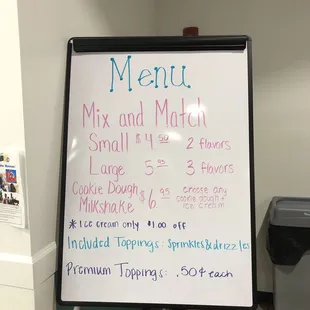 Menu
Mix and Match
Small $4.50 2 flavors
Large 5.95 3 flavors
Cookie Dough Milkshake $6.95 choose any cookie dough + ice cream
*Ice cream only $1.00 off
Included Toppings: Sprinkles & drizzles
Premium Toppings: .50¢ each